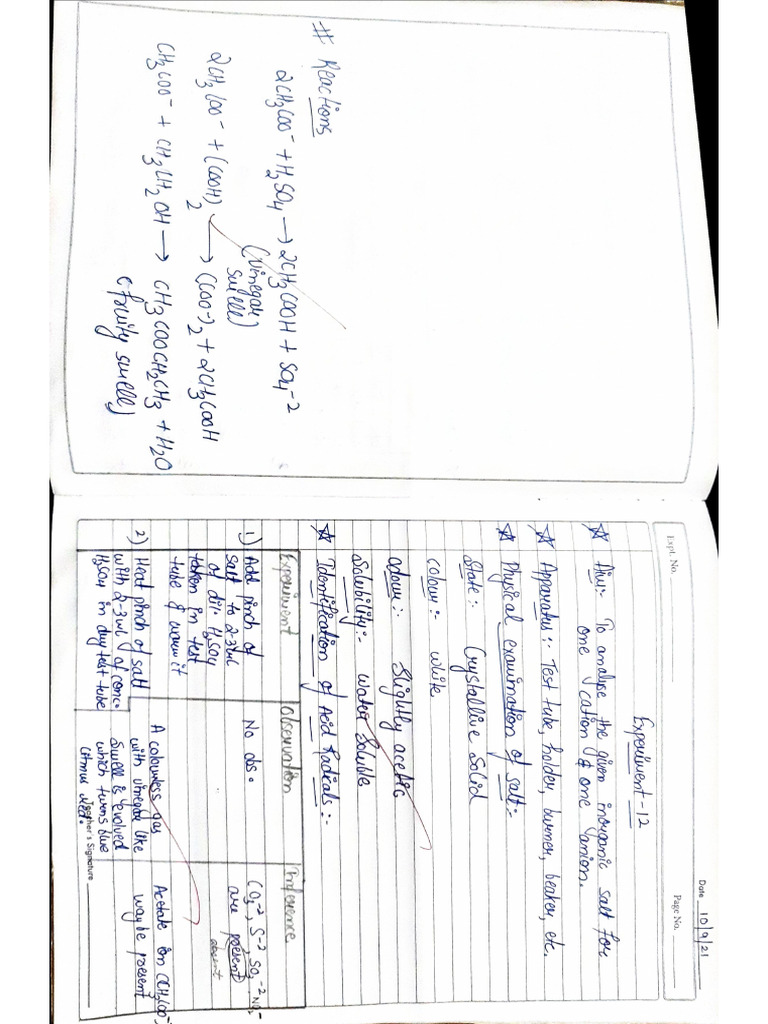 # Reactions
2CH3COO⁻ + H2SO4 → 2CH3COOH + SO4⁻²
(Vinegar
smell)
2CH3COO⁻ + (COOH)2 → (COO⁻)2 + 2CH3COOH
CH3COO⁻ + CH3CH2OH → CH3COOCH2CH3 + H2O
(fruity smell)
Date 10/9/21
Expt. No.
Page No.
Experiment-12
☆ Aim:- To analyse the given inorganic salt for
one cation & one anion.
☆ Apparatus:- Test tube, holder, burner, beaker, etc.
☆ Physical examination of salt:-
State:- Crystalline Solid
Colour:- white
Odour:- Slightly acetic
Solubility:- Water Soluble
☆ Identification of Acid Radicals:-
Experiment Observation Inference
1) Add pinch of
salt to 2-3ml
of dil. H2SO4
taken in test
tube & warm it
No obs.
CO3⁻², S⁻², SO3⁻² NO2⁻
are present
absent
2) Heat pinch of salt
with 2-3ml of conc.
H2SO4 in dry test tube
A colourless gas
with vinegar like
Smell is evolved
which turns blue
litmus red.
Acetate ion (CH3COO⁻)
maybe present
Teacher's Signature